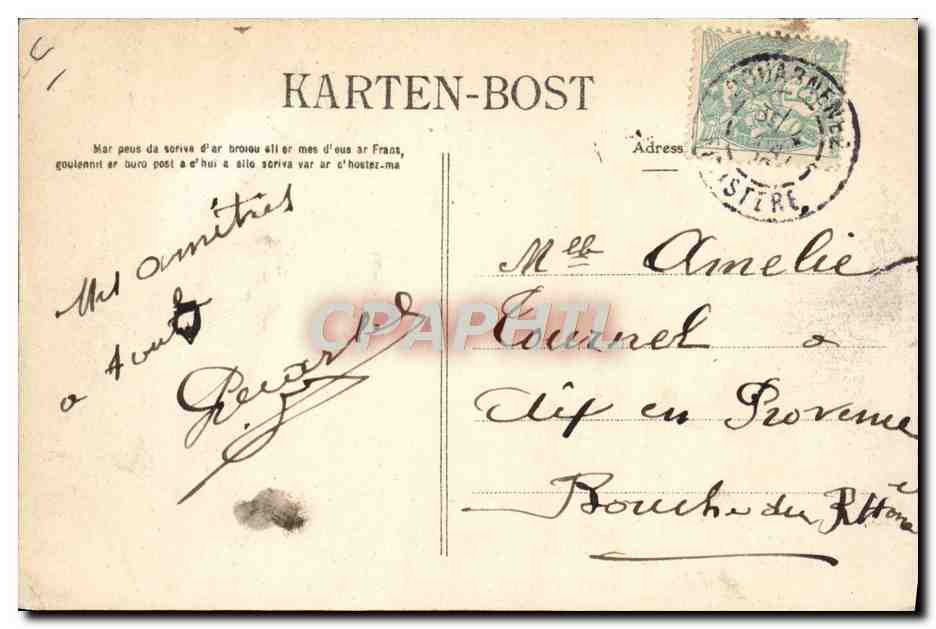 KARTEN-BOST
Mar peus da scriva d'ar broiou all er mes d'eus ar Frans,
goulennit er buro post ac'hui a ello scriva var ar c'hostez-ma
Adress
DOUARNENEZ
FINISTERE
Mes amitiés
a toute
Mlle Amelie
Tournel a
Aix en Provence
Bouche du Rhone
CPAPHIL